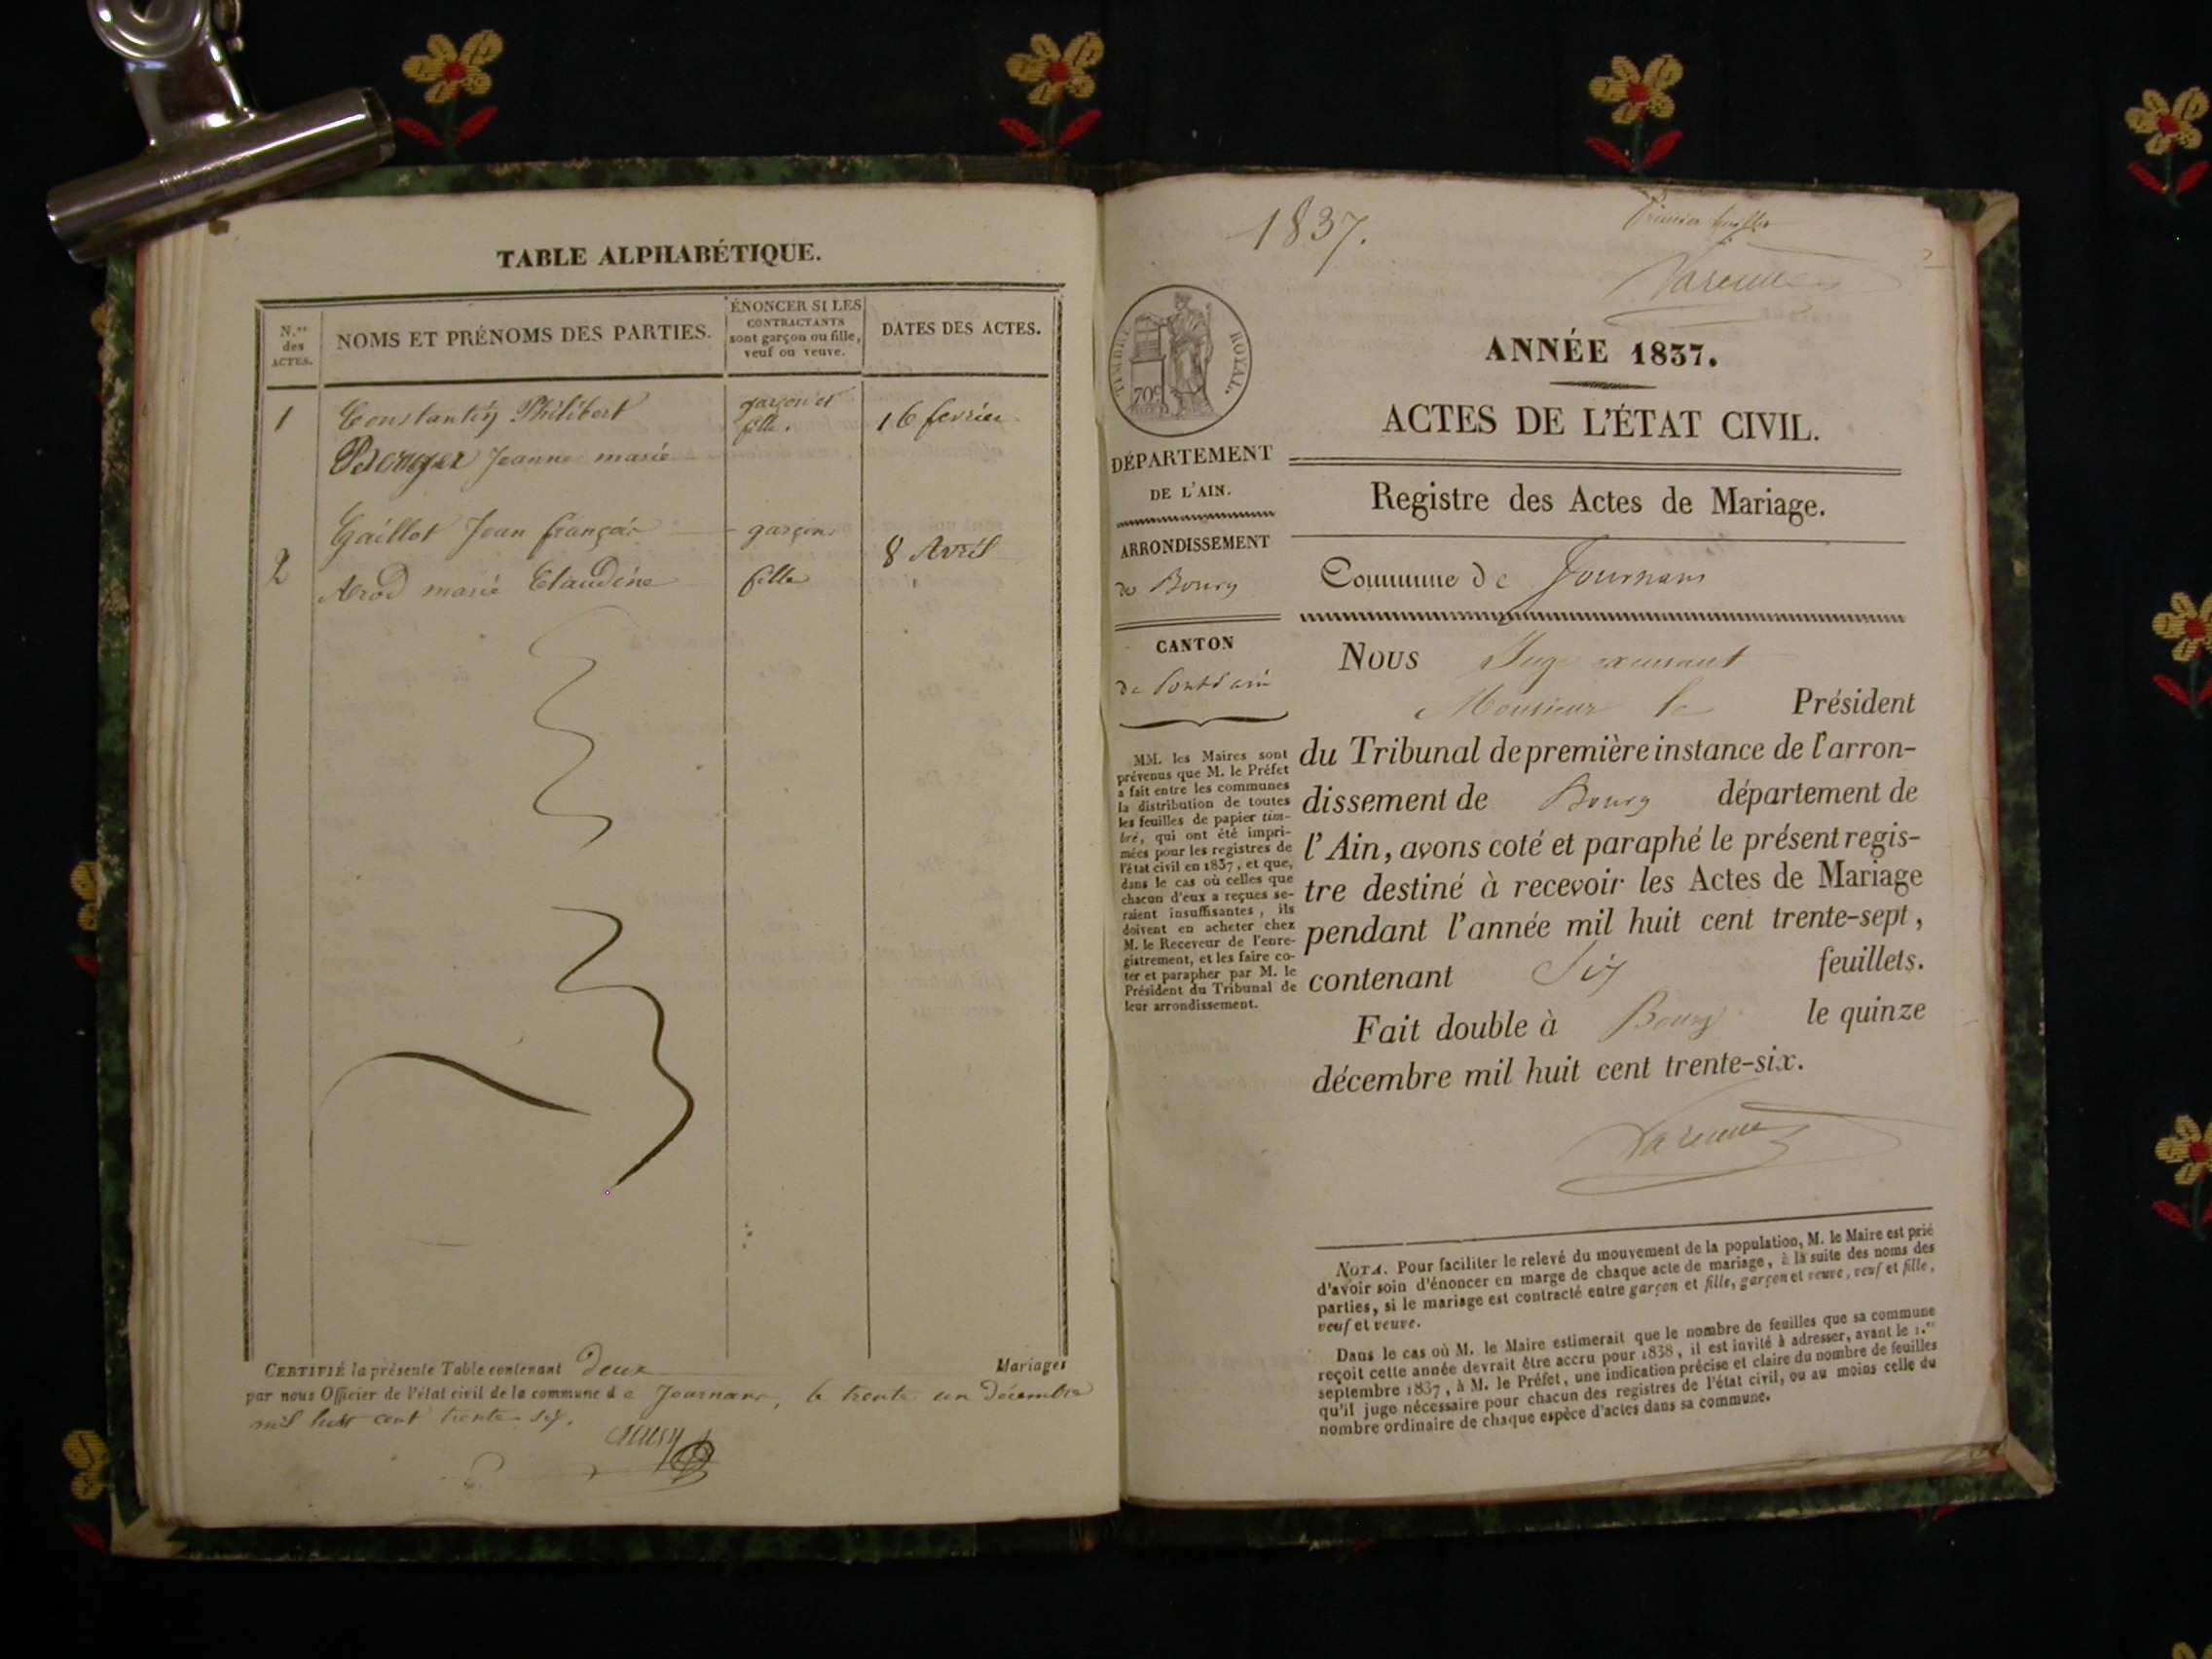 TABLE ALPHABÉTIQUE.
N.os des ACTES.
NOMS ET PRÉNOMS DES PARTIES.
ÉNONCER SI LES
CONTRACTANTS
sont garçon ou fille,
veuf ou veuve.
DATES DES ACTES.
1 Constantin Philibert garçon et fille. 16 fevrier
Jeanne marie
Gaillot Jean françois garçon
2 8 Avril
Arod marie Claudine fille
CERTIFIÉ la présente Table contenant deux Mariages
par nous Officier de l'état civil de la commune de Journans, le trente un décembre
mil huit cent trente-six.
1837.
Premier feuillet
Varenne
TIMBRE ROYAL.
70c
ANNÉE 1837.
ACTES DE L'ÉTAT CIVIL.
Registre des Actes de Mariage.
Commune de Journans
DÉPARTEMENT
DE L'AIN.
ARRONDISSEMENT
de Bourg
CANTON
de Pontd'ain
MM. les Maires sont
prévenus que M. le Préfet
a fait entre les communes
la distribution de toutes
les feuilles de papier tim-
bré, qui ont été impri-
mées pour les registres de
l'état civil en 1837, et que,
dans le cas où celles que
chacun d'eux a reçues se-
raient insuffisantes, ils
doivent en acheter chez
M. le Receveur de l'enre-
gistrement, et les faire co-
ter et parapher par M. le
Président du Tribunal de
leur arrondissement.
NOUS Juge
Monsieur le Président
du Tribunal de première instance de l'arron-
dissement de Bourg département de
l'Ain, avons coté et paraphé le présent regis-
tre destiné à recevoir les Actes de Mariage
pendant l'année mil huit cent trente-sept,
contenant Six feuillets.
Fait double à Bourg le quinze
décembre mil huit cent trente-six.
Varenne
NOTA. Pour faciliter le relevé du mouvement de la population, M. le Maire est prié
d'avoir soin d'énoncer en marge de chaque acte de mariage, à la suite des noms des
parties, si le mariage est contracté entre garçon et fille, garçon et veuve, veuf et fille,
veuf et veuve.
Dans le cas où M. le Maire estimerait que le nombre de feuilles que sa commune
reçoit cette année devrait être accru pour 1838, il est invité à adresser, avant le 1.er
septembre 1837, à M. le Préfet, une indication précise et claire du nombre de feuilles
qu'il juge nécessaire pour chacun des registres de l'état civil, ou au moins celle du
nombre ordinaire de chaque espèce d'actes dans sa commune.